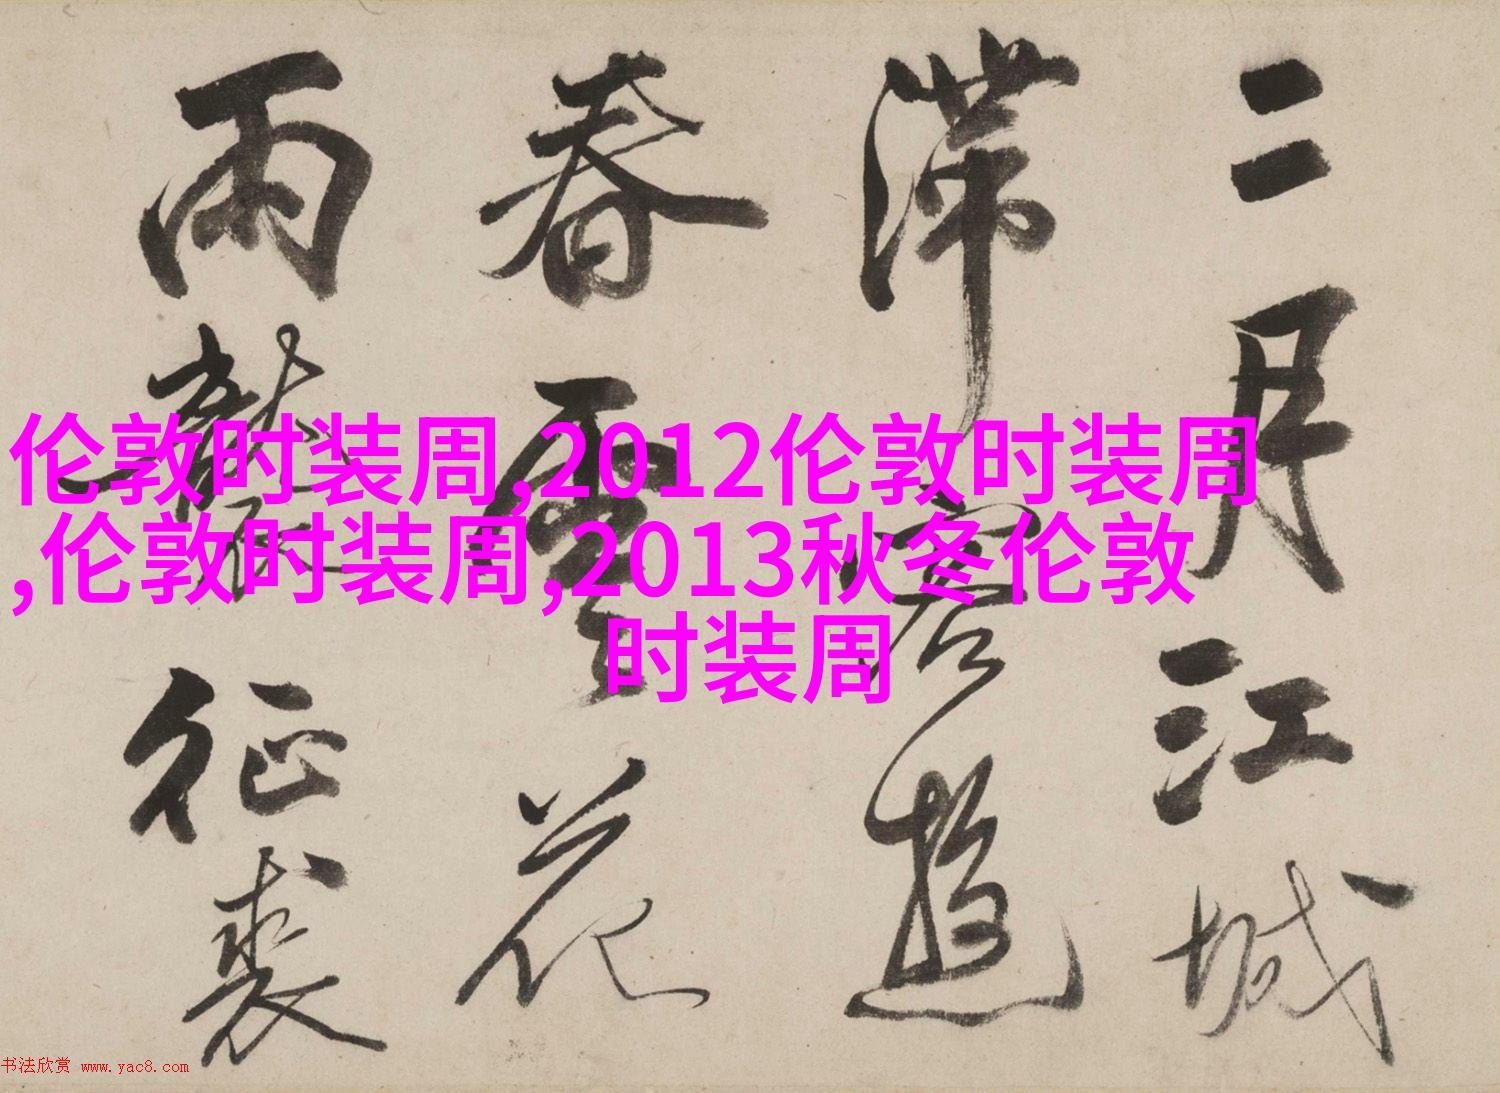 二月江城
滞客游
春雲花
雨
征裘
伦敦时装周,2012伦敦时装周
,伦敦时装周,2013秋冬伦敦
时装周
书法欣赏 www.yac8.com